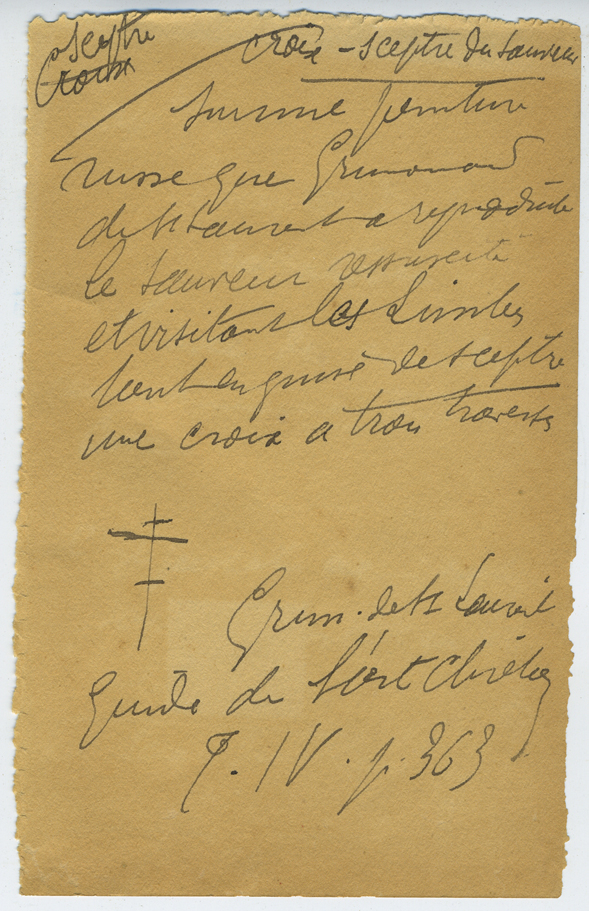 Sceptre
Croix
Croix – Sceptre du Sauveur
Sur une peinture
russe que Grimouard
de St Laurent a reproduite
le Sauveur ressuscité
et visitant les Limbes
tient en guise de sceptre
une croix à trois traverses
Grim. de St Laurent
Guide de l'art chrétien
T. IV. p. 363